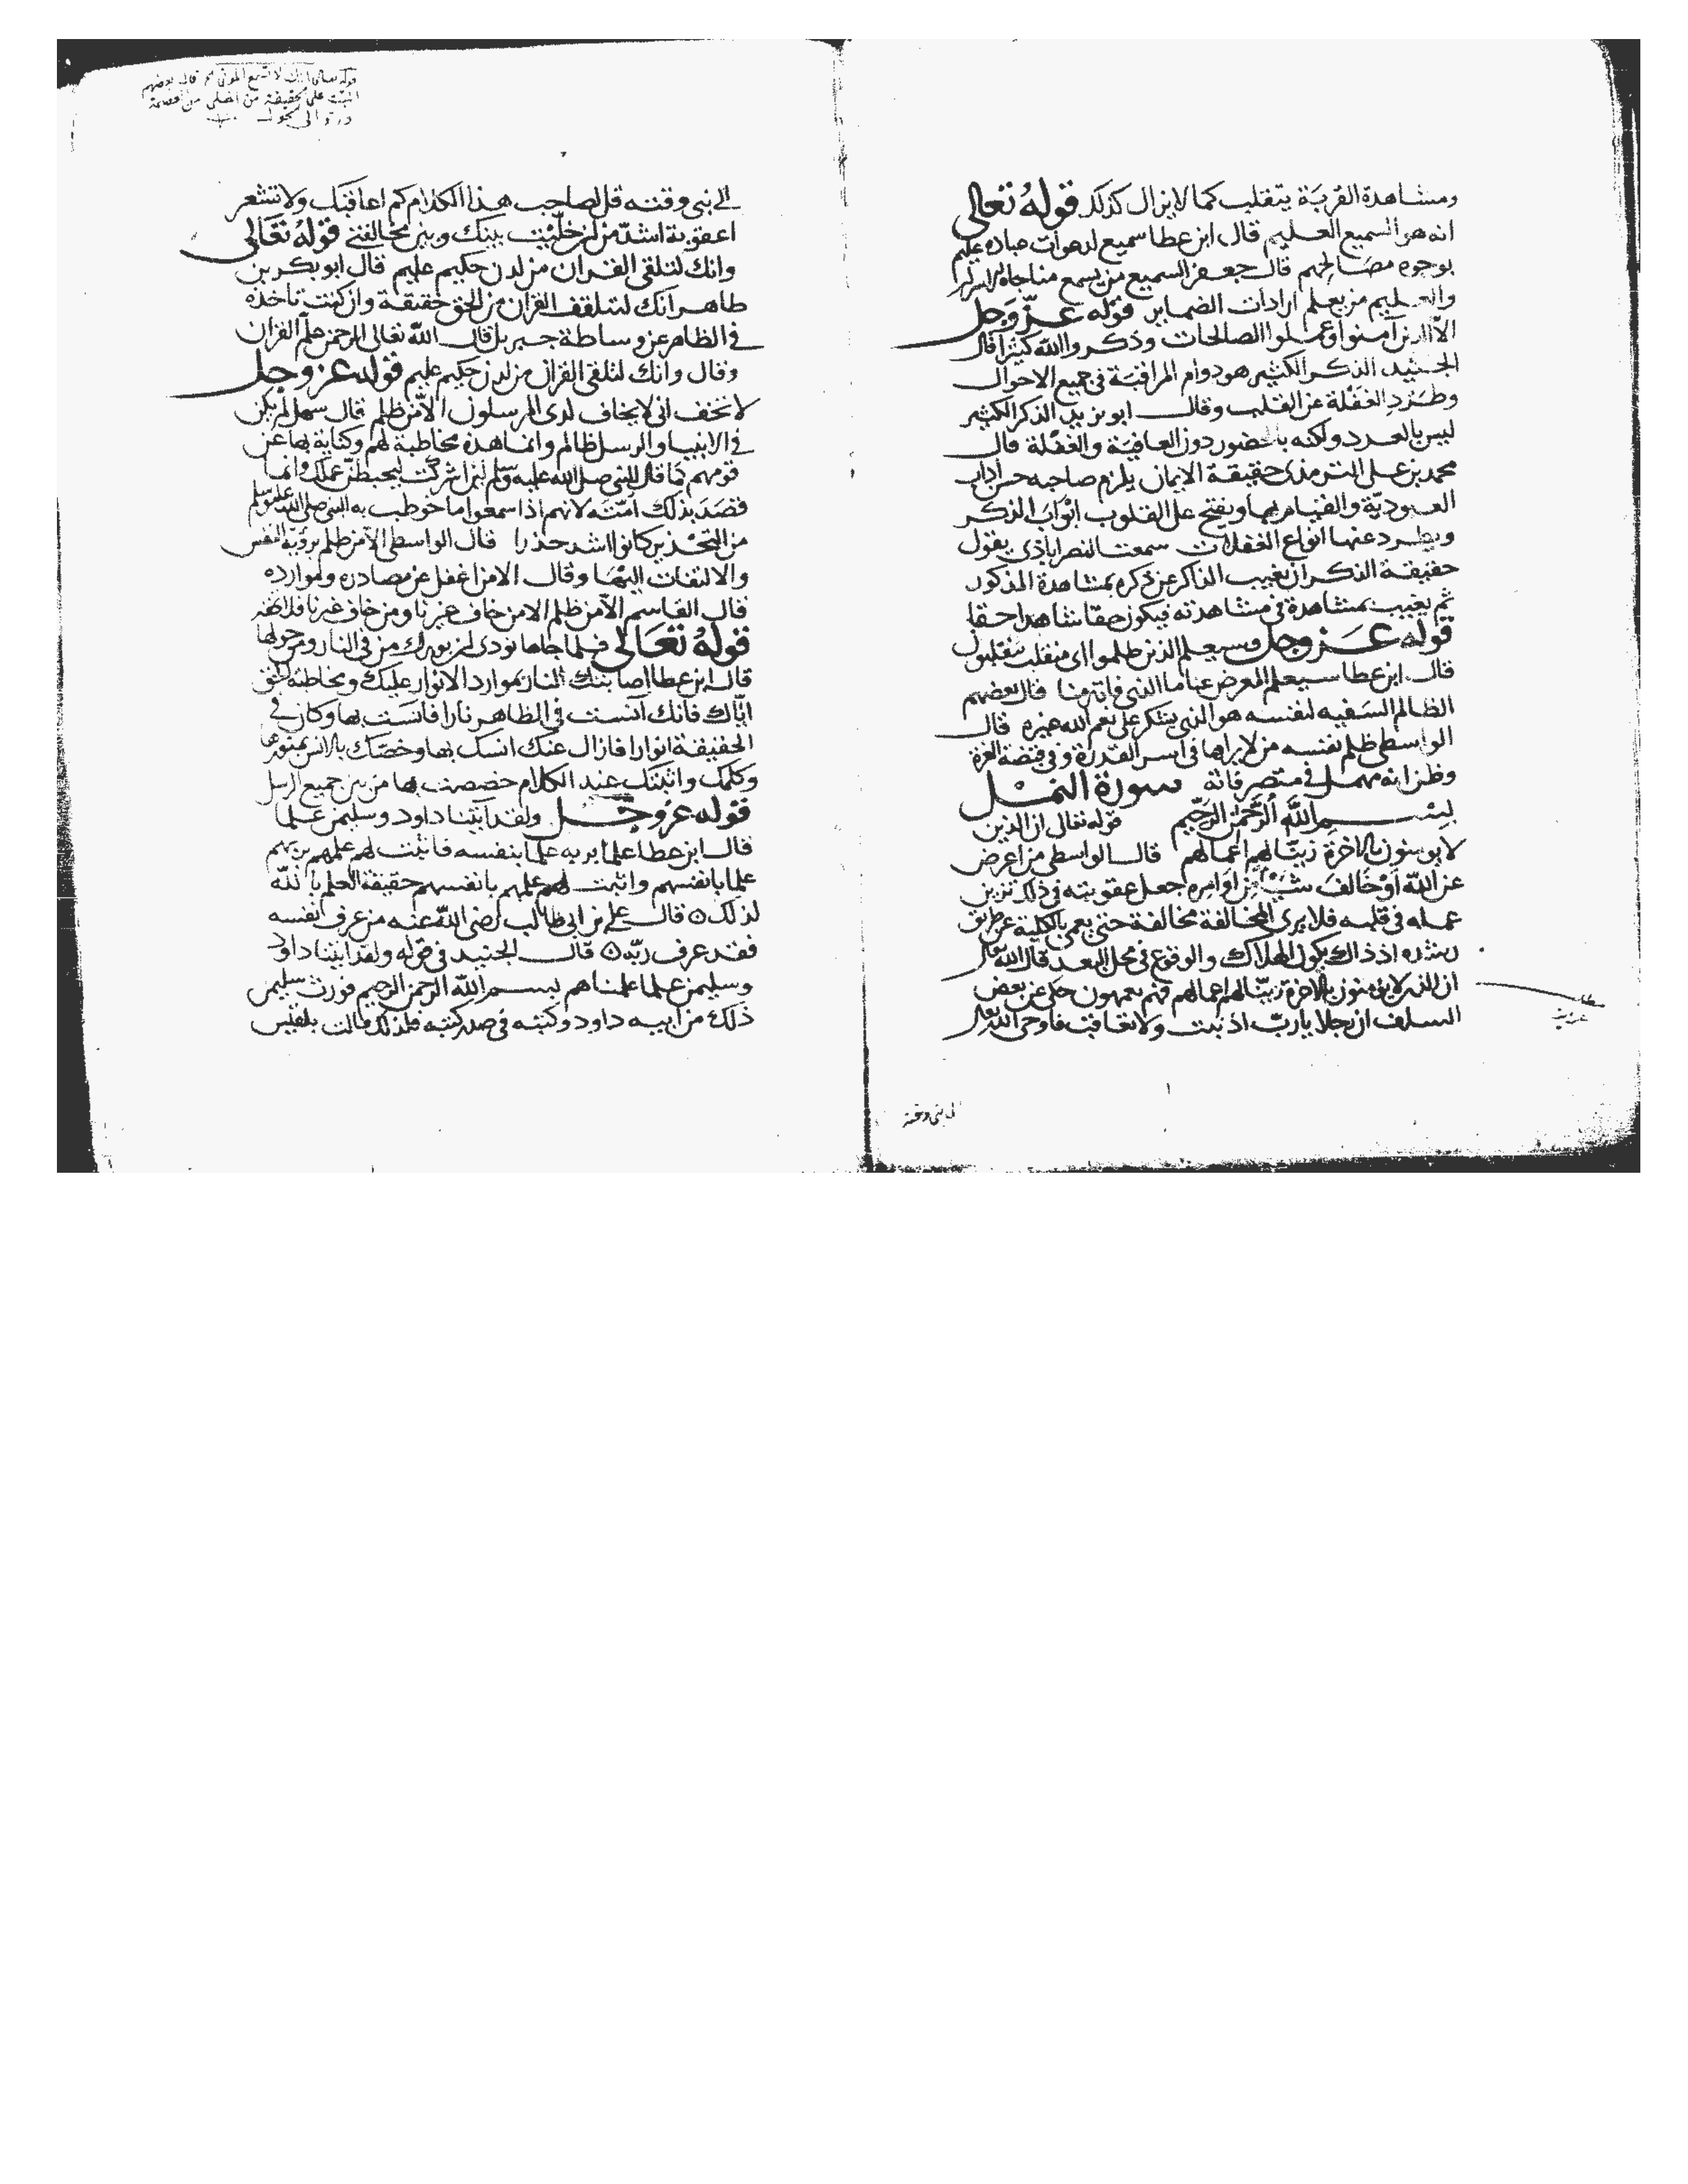 ومشاهدة القربة يتقلب كما لا يزال كذلك قوله تعالى
انه هو السميع العليم قال ابن عطا سميع لدعوات عباده عليم
بوجوه مصالحهم قال جعفر السميع من يسمع مناجاة الاسرار
والعليم من يعلم ارادات الضماير قوله عز وجل
الا الذين آمنوا وعملوا الصالحات وذكروا الله كثيرا قال
الجنيد الذكر الكثير هو دوام المراقبة في جميع الاحوال
وطرد الغفلة عن القلب وقال ابو يزيد الذكر الكثير
ليس بالعدد ولكنه بالحضور دون العافية والغفلة قال
محمد بن على الترمذى حقيقة الايمان يلزم صاحبه حسن اداب
العبودية والقيام بها ويفتح على القلوب ابواب الذكر
ويطرد عنها انواع الغفلات سمعت النصراباذى يقول
حقيقة الذكر ان يغيب الذاكر عن ذكره بمشاهدة المذكور
ثم يغيب بمشاهدة فى مشاهدته فيكون حقا شاهدا حقا
قوله عز وجل وسيعلم الذين ظلموا اى منقلب ينقلبون
قال ابن عطا سيعلم المعرض عنا ما الذى فاته منا قال بعضهم
الظالم السفيه لنفسه هو الذى يشكر على نعم الله غيره قال
الواسطى ظلم نفسه من لا يراها فى اسر القدرة وفى قبضة العزة
وظن انه مهمل فى متصرفاته سورة النمل
بسم الله الرحمن الرحيم قوله تعالى ان الذين
لا يومنون بالاخرة زينا لهم اعمالهم قال الواسطى من اعرض
عن الله او خالف شيئا من اوامره جعل عقوبته فى ذلك تزيين
عمله فى قلبه فلا يرى المخالفة مخالفة حتى يعمى بالكلية عن طريق
رشده اذ ذاك يكون الهلاك والوقوع فى محل البعد قال الله تعالى
ان الذين لا يومنون بالاخرة زينا لهم اعمالهم فهم يعمهون حكى عن بعض
السلف ان رجلا يا رب اذنبت ولا تعاقب فاوحى الله تعالى
الى نبى وقته
الى نبى وقته قل لصاحب هذا الكلام كم اعاقبك ولا تشعر
اعقوبة اشد من ان خليت بينك وبين مخالفتى قوله تعالى
وانك لتلقى القران من لدن حكيم عليم قال ابو بكر بن
طاهر انك لتتلقف القران من الحق حقيقة وان كنت تاخذه
فى الظاهر عن وساطة جبريل قال الله تعالى الرحمن علم القران
وقال وانك لتلقى القران من لدن حكيم عليم قوله عز وجل
لا تخف انى لا يخاف لدى المرسلون الا من ظلم قال سهل لم يكن
فى الانبيا والرسل ظالم وانما هذه مخاطبة لهم وكناية بها عن
قومهم كما قال للنبى صلى الله عليه وسلم لئن اشركت ليحبطن عملك وانما
قصد بذلك امته لانهم اذا سمعوا ما خوطب به النبى صلى الله عليه وسلم
من التحذير كانوا اشد حذرا قال الواسطى الا من ظلم برؤية النفس
والالتفات اليها وقال الا من اغفل عن مصادره وموارده
قال القاسم الا من ظلم الا من خاف غيرنا ومن خاف غيرنا فلا
قوله تعالى فلما جاها نودى ان بورك من فى النار ومن حولها
قال ابن عطا اصابتك النار بموارد الانوار عليك ومخاطبة الحق
اياك فانك آنست فى الظاهر نارا فانست بها وكان فى
الحقيقة انوارا فازال عنك انسك بها وخصك بالانس
وكلمك وثبتك عند الكلام خصصت بها من بين جميع الرسل
قوله عز وجل ولقد آتينا داود وسليمن علما
قال ابن عطا علما بربه علما بنفسه فاثبت لهم علمهم بربهم
علما بانفسهم واثبت لهم علمهم بانفسهم حقيقة العلم بالله
لذلك قال على بن ابى طالب رضى الله عنه من عرف نفسه
فقد عرف ربه قال الجنيد فى قوله ولقد آتينا داود
وسليمن علما علمناهم بسم الله الرحمن الرحيم فورث سليمن
ذلك من ابيه داود وكتبه فى صدر كتبه فلذلك قالت بلقيس